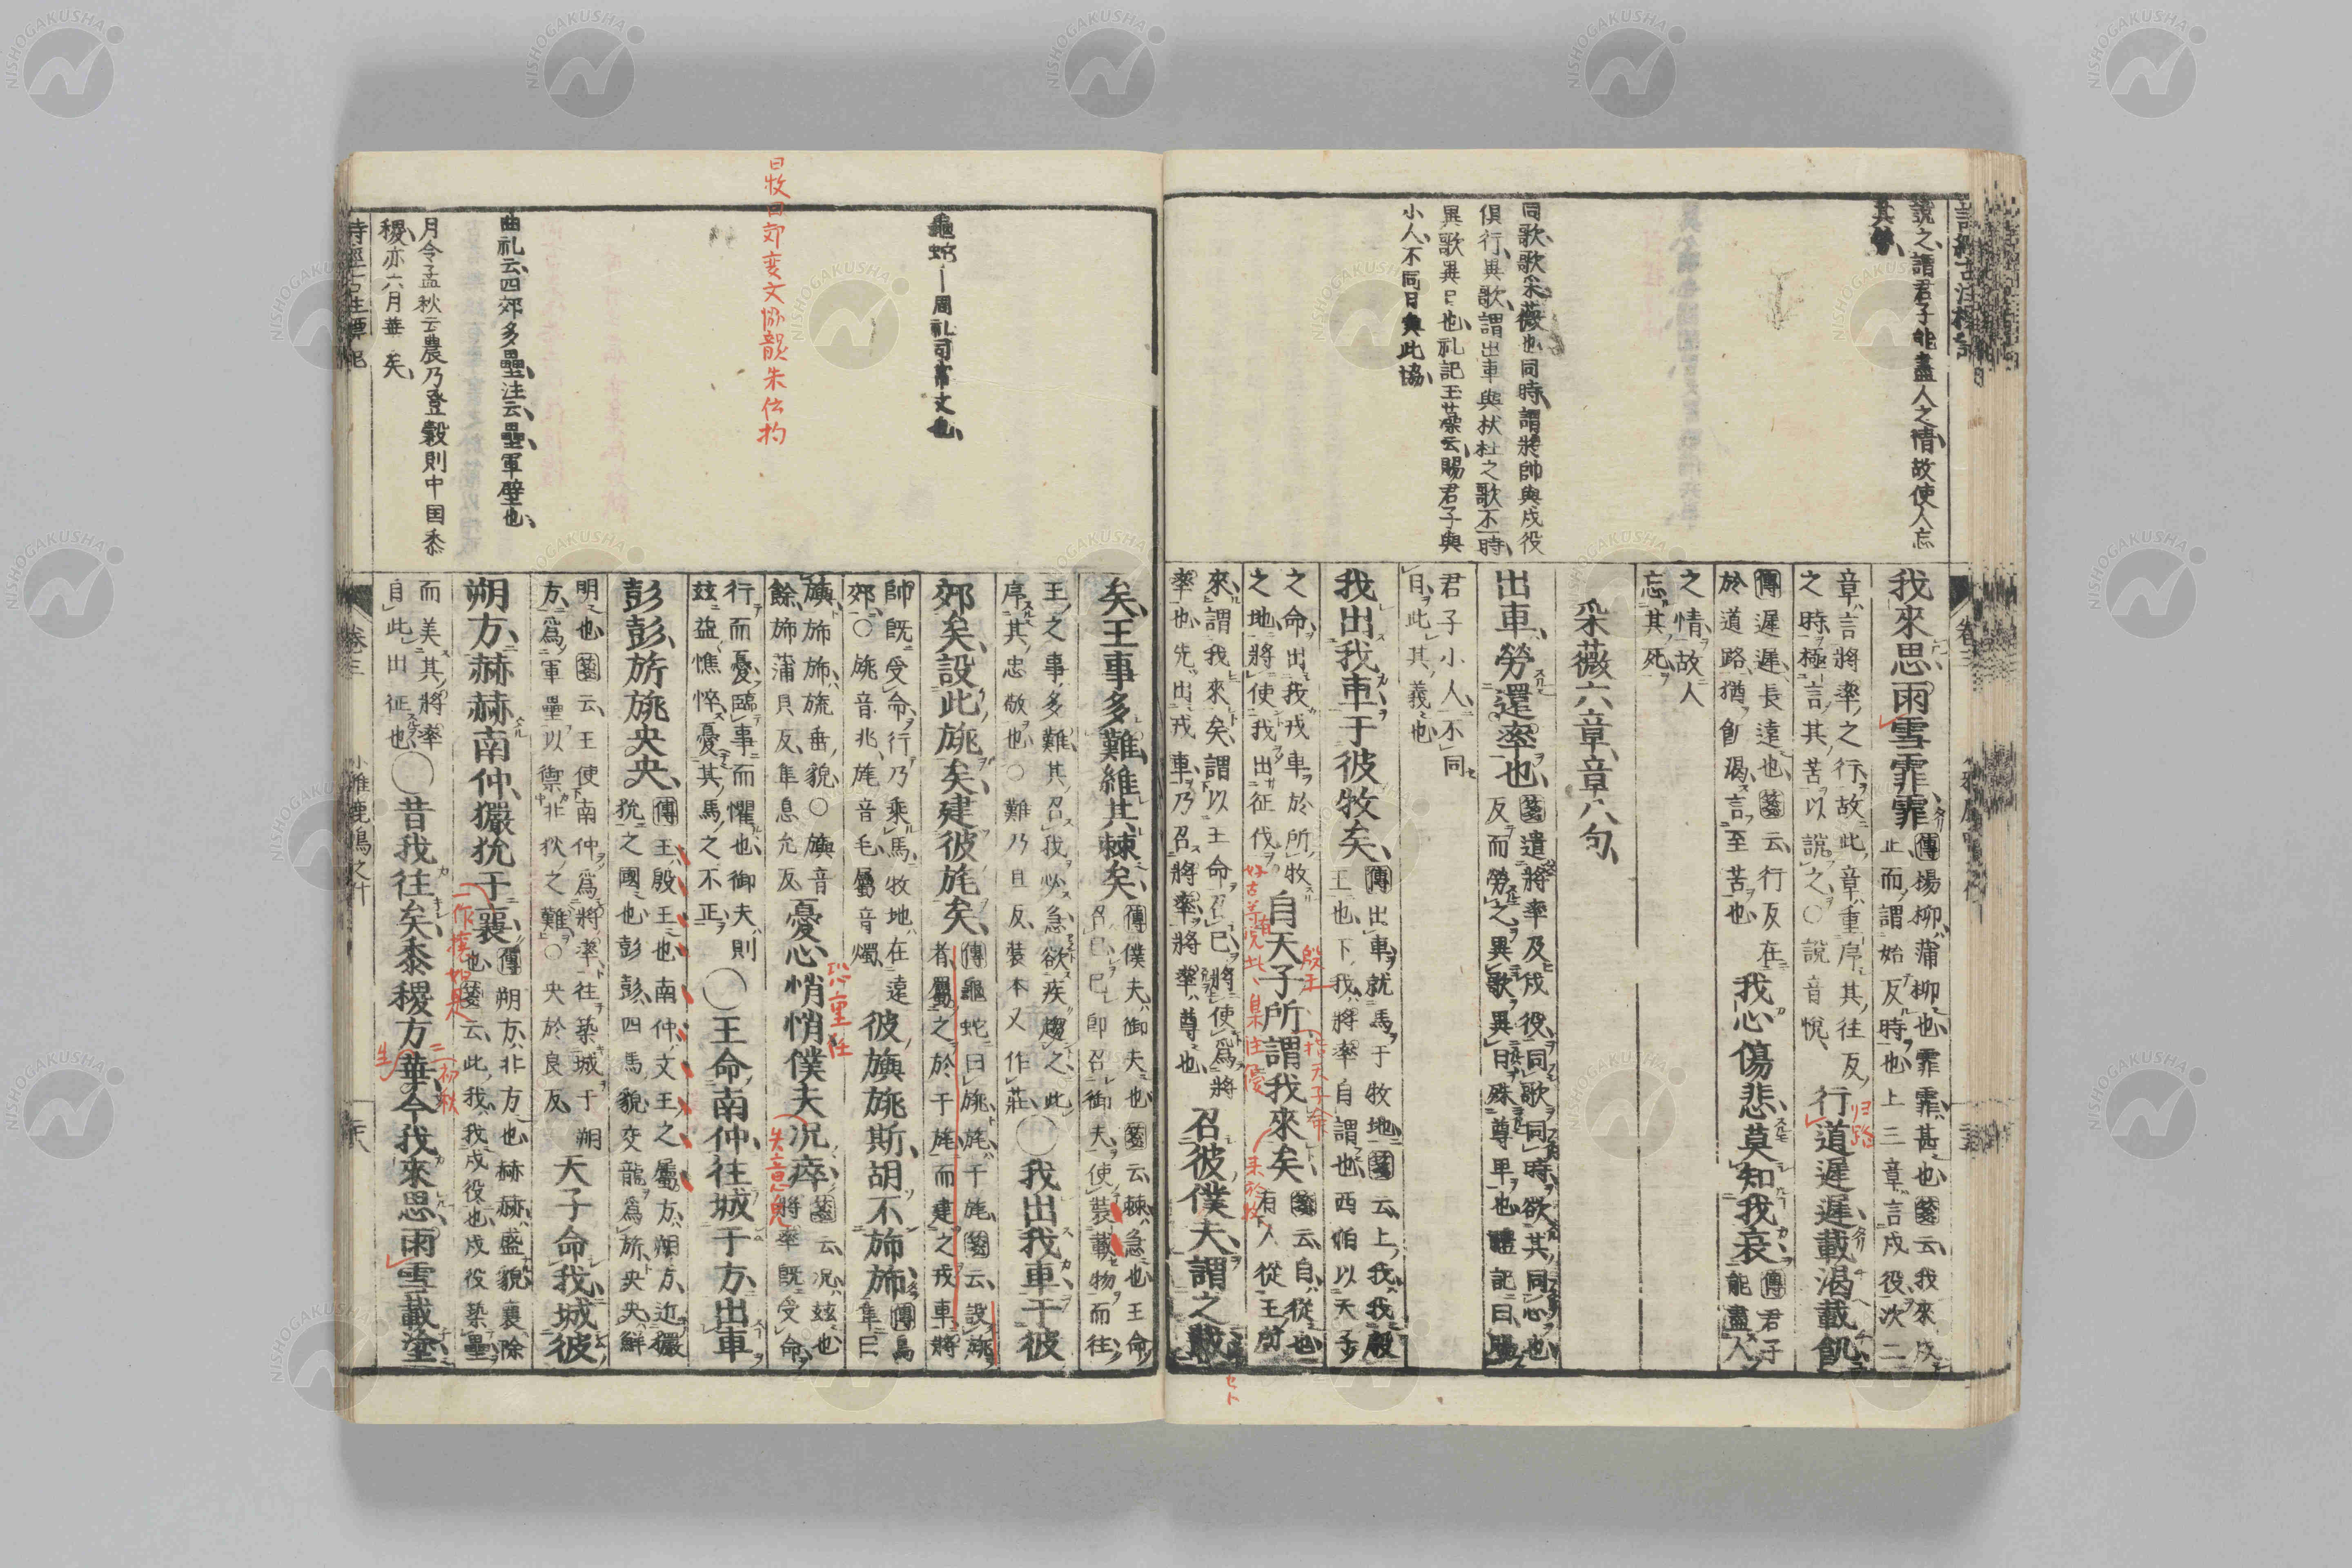 說之、謂君子能盡人之情、故使人忘
其勞、
同歌歌采薇也同時謂將帥與戍役
俱行、異歌謂出車與杕杜之歌不一時、
異歌異日也、礼記玉藻云賜君子與
小人、不同日與此協、
我來思、雨雪霏霏、傳楊柳蒲柳也、霏霏、甚也、箋云、我來、戍
止而謂始反時也、上三章言戍役、次二
章、言將率之行、故此章重序其往反、
之時、極言其苦以說之、○說音悅、
行道遲遲、載渴載飢、
傳遲遲、長遠也、箋云、行反在
於道路、猶飢渴、言至苦也
我心傷悲、莫知我哀、
傳君子
能盡人
之情、故人
忘其死、
采薇六章、章八句、
出車、勞還率也、箋遣將率及戍役、同歌同時、欲其同心也、
反而勞之、異歌異日、殊尊卑也、禮記曰、賜
君子小人、不同
日、此其義也
我出我車、于彼牧矣、傳出車就馬于牧地、箋云、上我我殷
王也、下我、將率自謂也、西伯以天子
之命、出我戎車於所牧
之地、將使我出征伐、
自天子所、謂我來矣、
箋云、自、從也、
有人從王所
來、謂我來矣、謂以王命召己、將使爲將
率也、先出戎車、乃召將率、將率尊也、
召彼僕夫、謂之載
詩經古注標記
卷三
龜蛇―周礼司常文也、
曰牧曰郊変文協韻朱伝拘
曲礼云、四郊多壘、注云、壘軍壁也、
月令孟秋云農乃登穀則中国黍
稷、亦六月華矣、
矣、王事多難、維其棘矣、傳僕夫、御夫也、箋云、棘、急也、王命
召己、己即召御夫、使裝載物而往、
王之事多難、其召我必急、欲疾趨之、此
序其忠敬也、○難乃旦反、裝本又作莊、
○我出我車、于彼
郊矣、設此旐矣、建彼旄矣、
傳龜蛇曰旐、旄、干旄、箋云、設旐
者、屬之於干旄、而建之戎車、將
帥既受命、行乃乘馬、牧地在遠
郊、○旐音兆、旄音毛、屬音燭、
彼旟旐斯、胡不旆旆、
傳鳥
隼曰
旟、旆旆、旒垂貌、○旟音
餘、旆蒲貝反、隼息允反、
憂心悄悄、僕夫況瘁、
箋云、況、茲也、
將率既受命、
行而憂、臨事而懼也、御夫則
茲益憔悴、憂其馬之不正、
○王命南仲、往城于方、出車
彭彭、旂旐央央、傳王、殷王也、南仲、文王之屬、方、朔方、近玁
狁之國也、彭彭、四馬貌、交龍爲旂、央央、鮮
明也、箋云、王使南仲爲將率、往築城于朔
方、爲軍壘以禦北狄之難、○央於良反、
天子命我、城彼
朔方、赫赫南仲、玁狁于襄、傳朔方、北方也、赫赫、盛貌、襄、除
也、箋云、此我、我戍役也、戍役築壘、
而美其將率
自此出征也、
○昔我往矣、黍稷方華、今我來思、雨雪載塗、
詩經古注標記
卷三
小雅鹿鳴之什